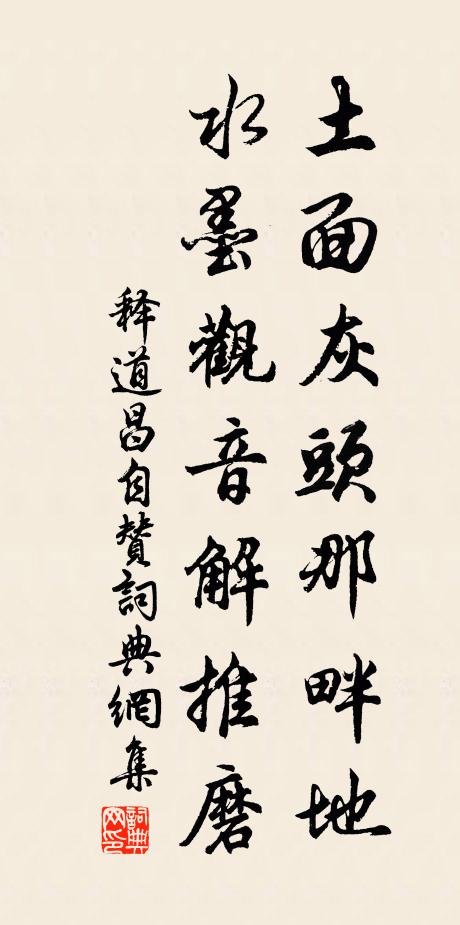 土面灰頭那畔地
水墨觀音解推磨
释道昌自贊詞典網集
詞典網印